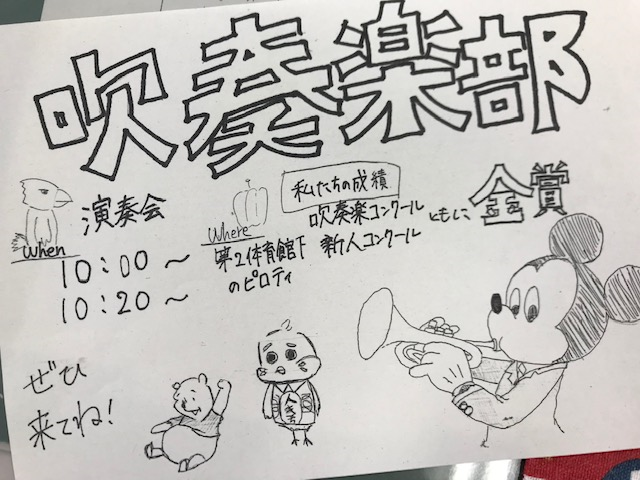 吹奏楽部
When
演奏会
10:00～
10:20～
Where
第2体育館下
のピロティ
私たちの成績
吹奏楽コンクール
新人コンクール
ともに
金賞
ぜひ
来てね!